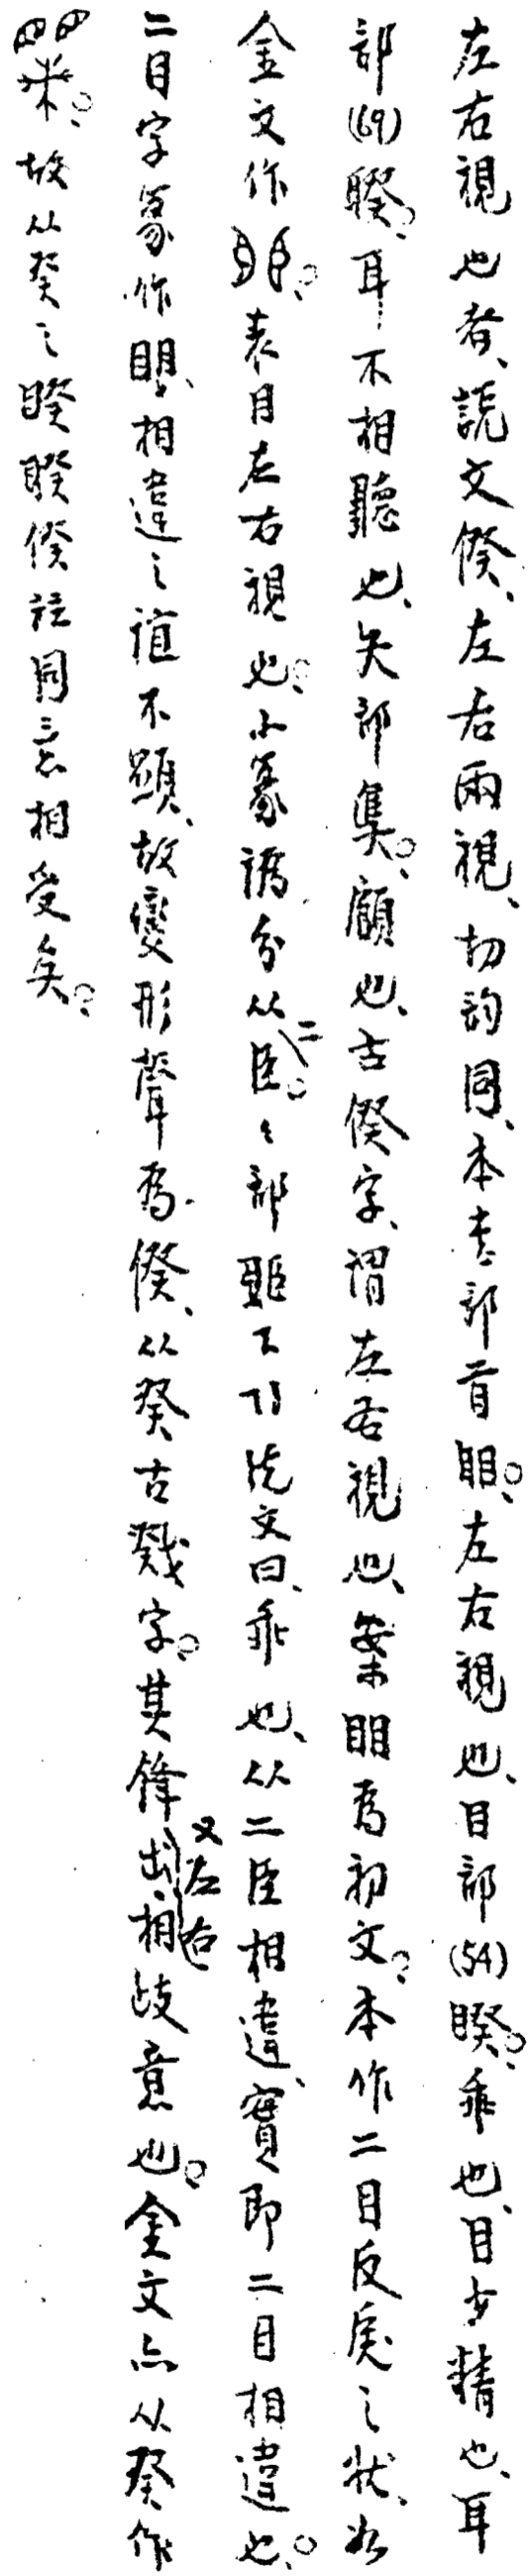 左右視也者、說文傒、左右兩視、切韵同、本書部首䀠、左右視也、目部(54)睽、乖也、目少精也、耳
部(69)聧、耳不相聽也、矢部、顧也、古傒字、謂左右視也、案䀠為初文、本作二目反戾之狀、如
金文作、表目左右視也。小篆譌分从二臣、臣部下引說文曰、乖也、从二臣相違、實即二目相違也、
二目字篆作䀠、相違之誼不顯、故變形聲為傒、从癸古戣字。其鋒又左右出、相歧意也。金文亦从癸作
。故从癸之睽聧傒竝同意相受矣。